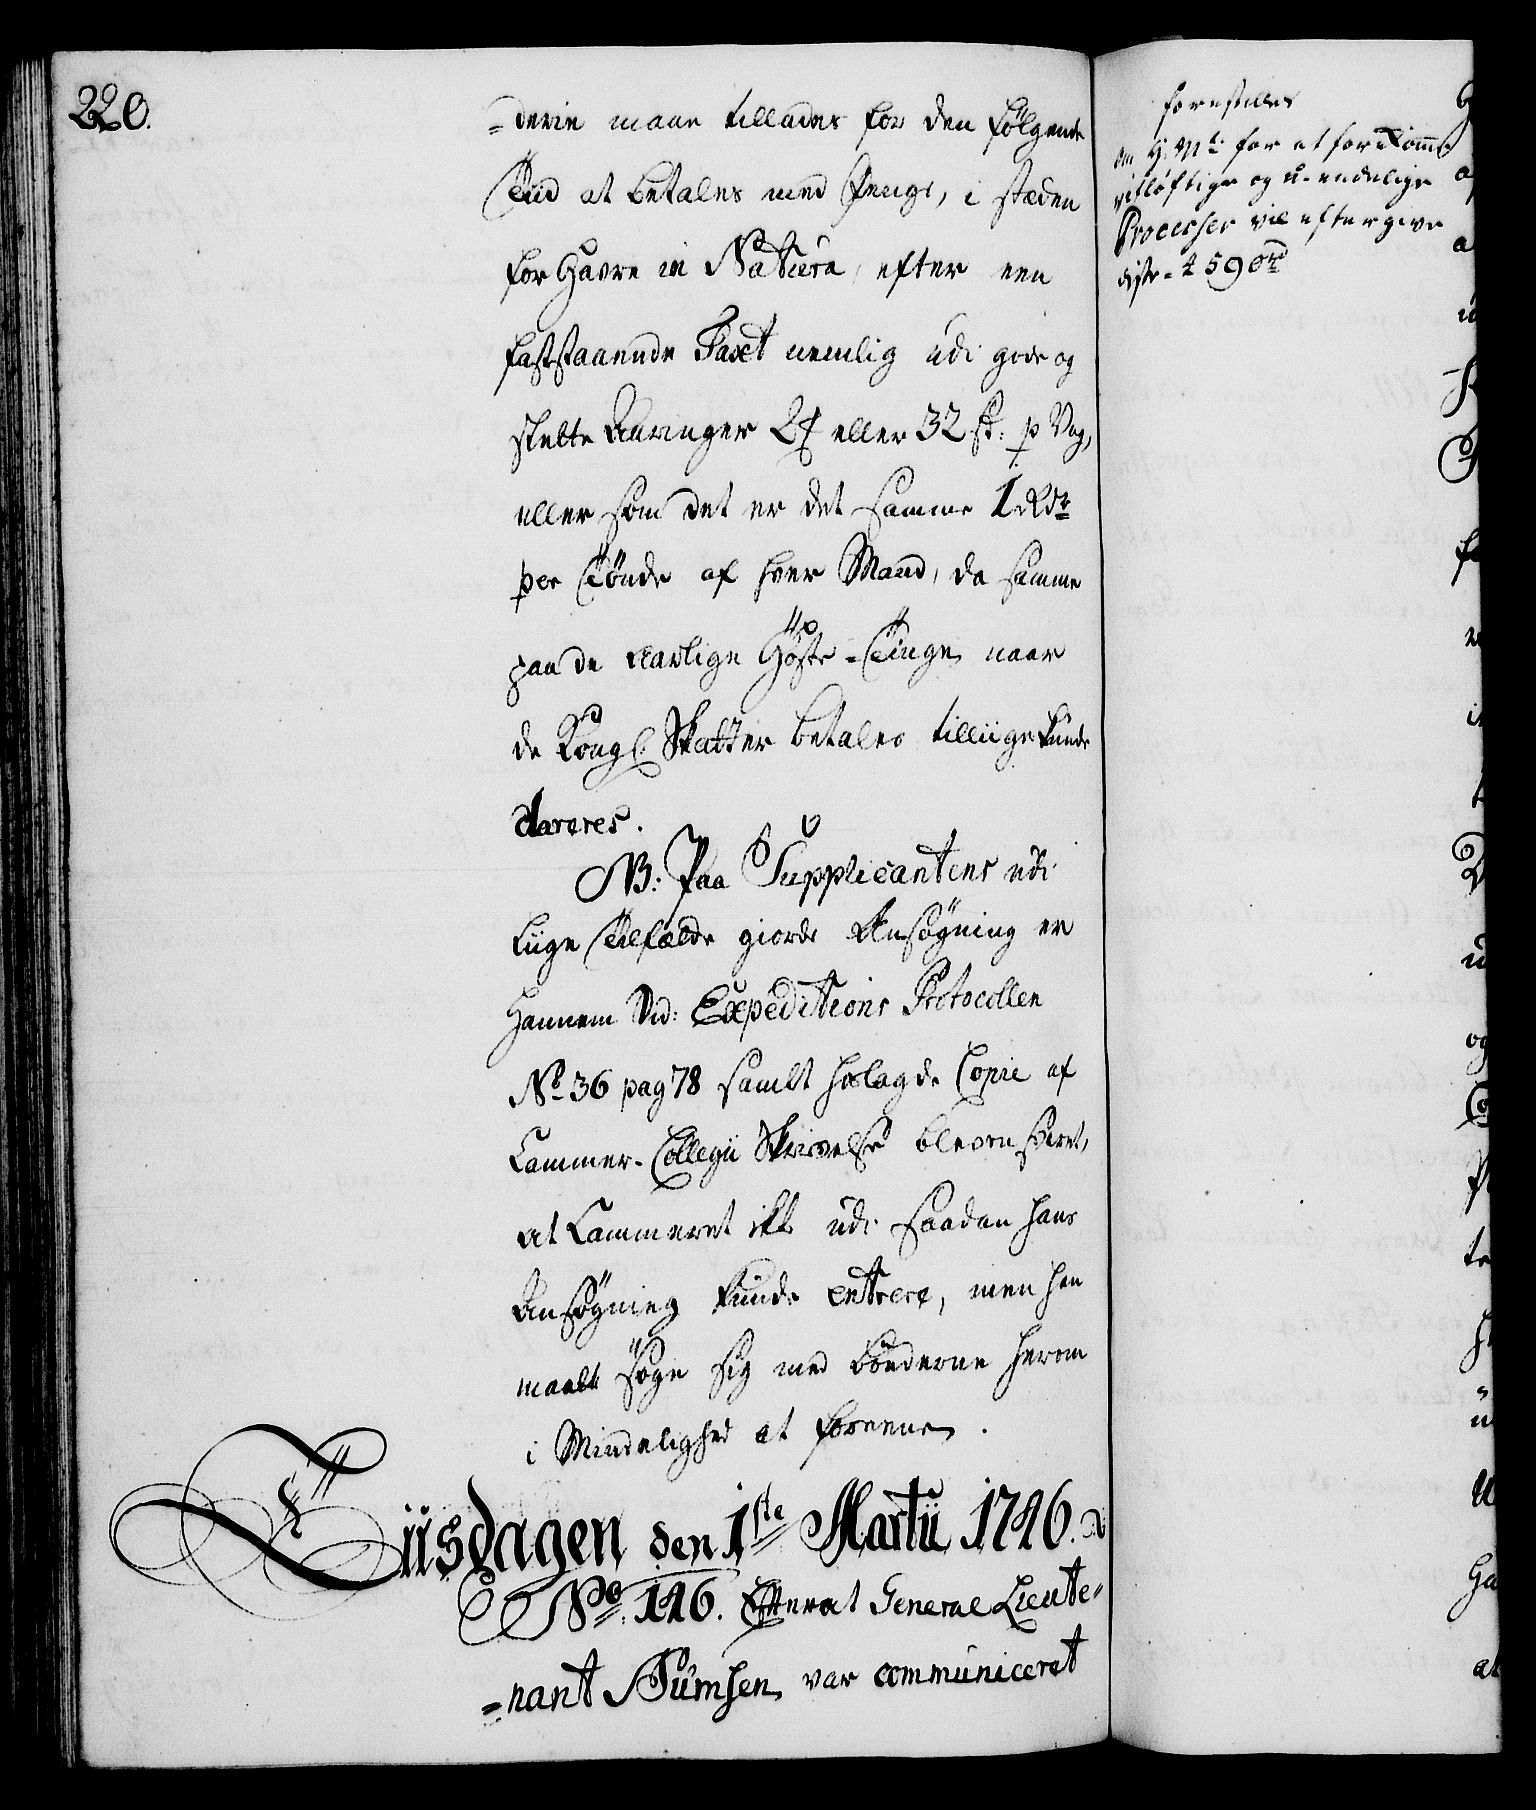 220.
=derne maae tillades for den følgende
Tiid at betales med Penge, i stæden
for Havre in Natura, efter een
faststaaende Taxt nemlig udi gode og
slette Aaringer 2 ℔ eller 32 sk: p Vog,
eller som det er det samme 1 Rdr
per Tönde af hver Mand, da samme
paa de aarlige Høste-Tinge, naar
de Kongl: Skatter betales tilliige kunde
clareres.
NB: Paa Supplicantens udi
liige Tilfælde giorde Ansøgning er
hannem Vid: Expeditions Protocollen
No 36 pag 78 samt hoslagde Copie af
Cammer-Collegii Skrivelse bleven svaret,
at Cammeret ikke udi saadan hans
Ansøgning kunde entrere, men han
maatte søge sig med Bönderne herom
i Mindelighed at foreene.
Tiisdagen den 1ste Martii 1746.
No 146. Efterat General Lieute=
=nant Numsen, var communiceret
forestilles
om H: Mt: for at forekomme
vitløftige og u-endelige
Processer vil eftergive
disse - 4590 rd